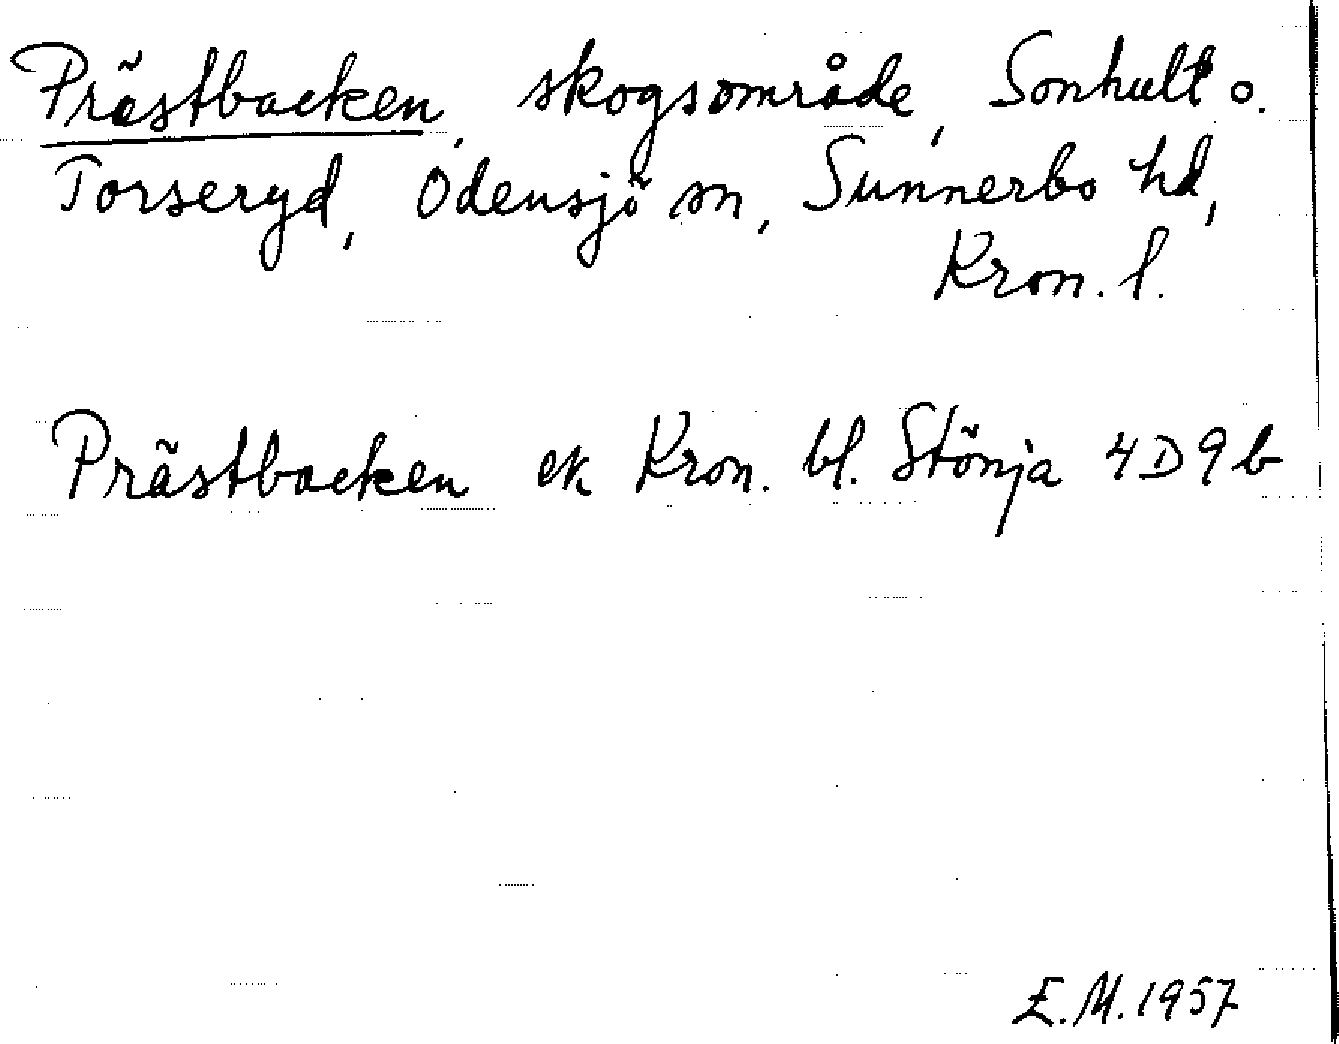 Prästbacken, skogsområde, Sonhult o.
Torseryd, Odensjö sn, Sunnerbo hd,
Kron. l.
Prästbacken ek Kron. bl. Stönja 4D9b
E.M. 1957